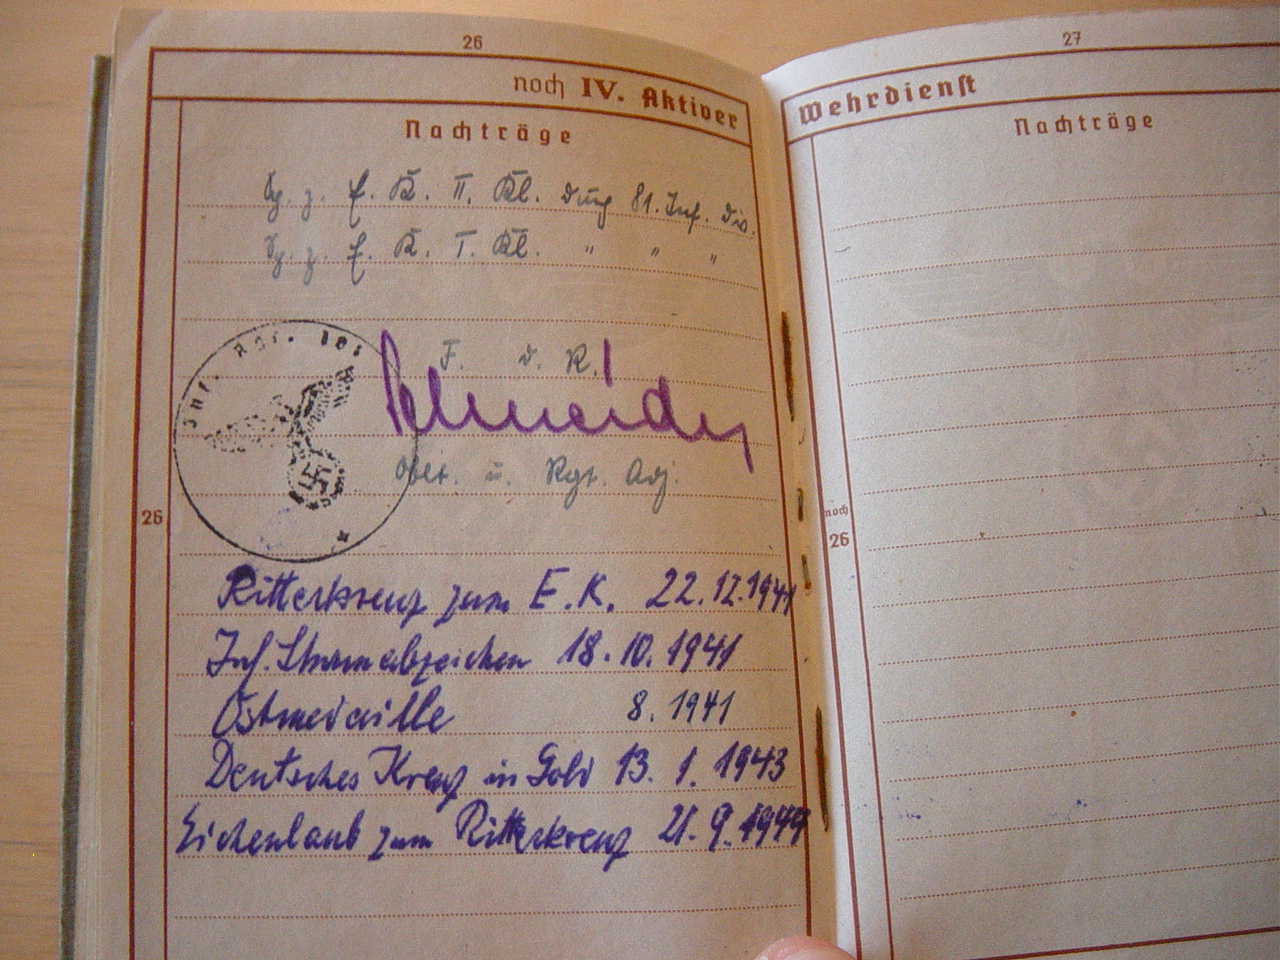 26
noch IV. Aktiver
Nachträge
z. E. K. II. Kl. durch 81. Inf. Div.
z. E. K. I. Kl. " " "
Inf. Rgt.
F. d. R.
Schneider
u. Rgt. Adj.
26
Ritterkreuz zum E. K. 22.12.1941
Inf. Sturmabzeichen 18.10.1941
Ostmedaille 8.1941
Deutsches Kreuz in Gold 13. 1. 1943
Eichenlaub zum Ritterkreuz 21.9.1944
27
Wehrdienst
Nachträge
noch
26